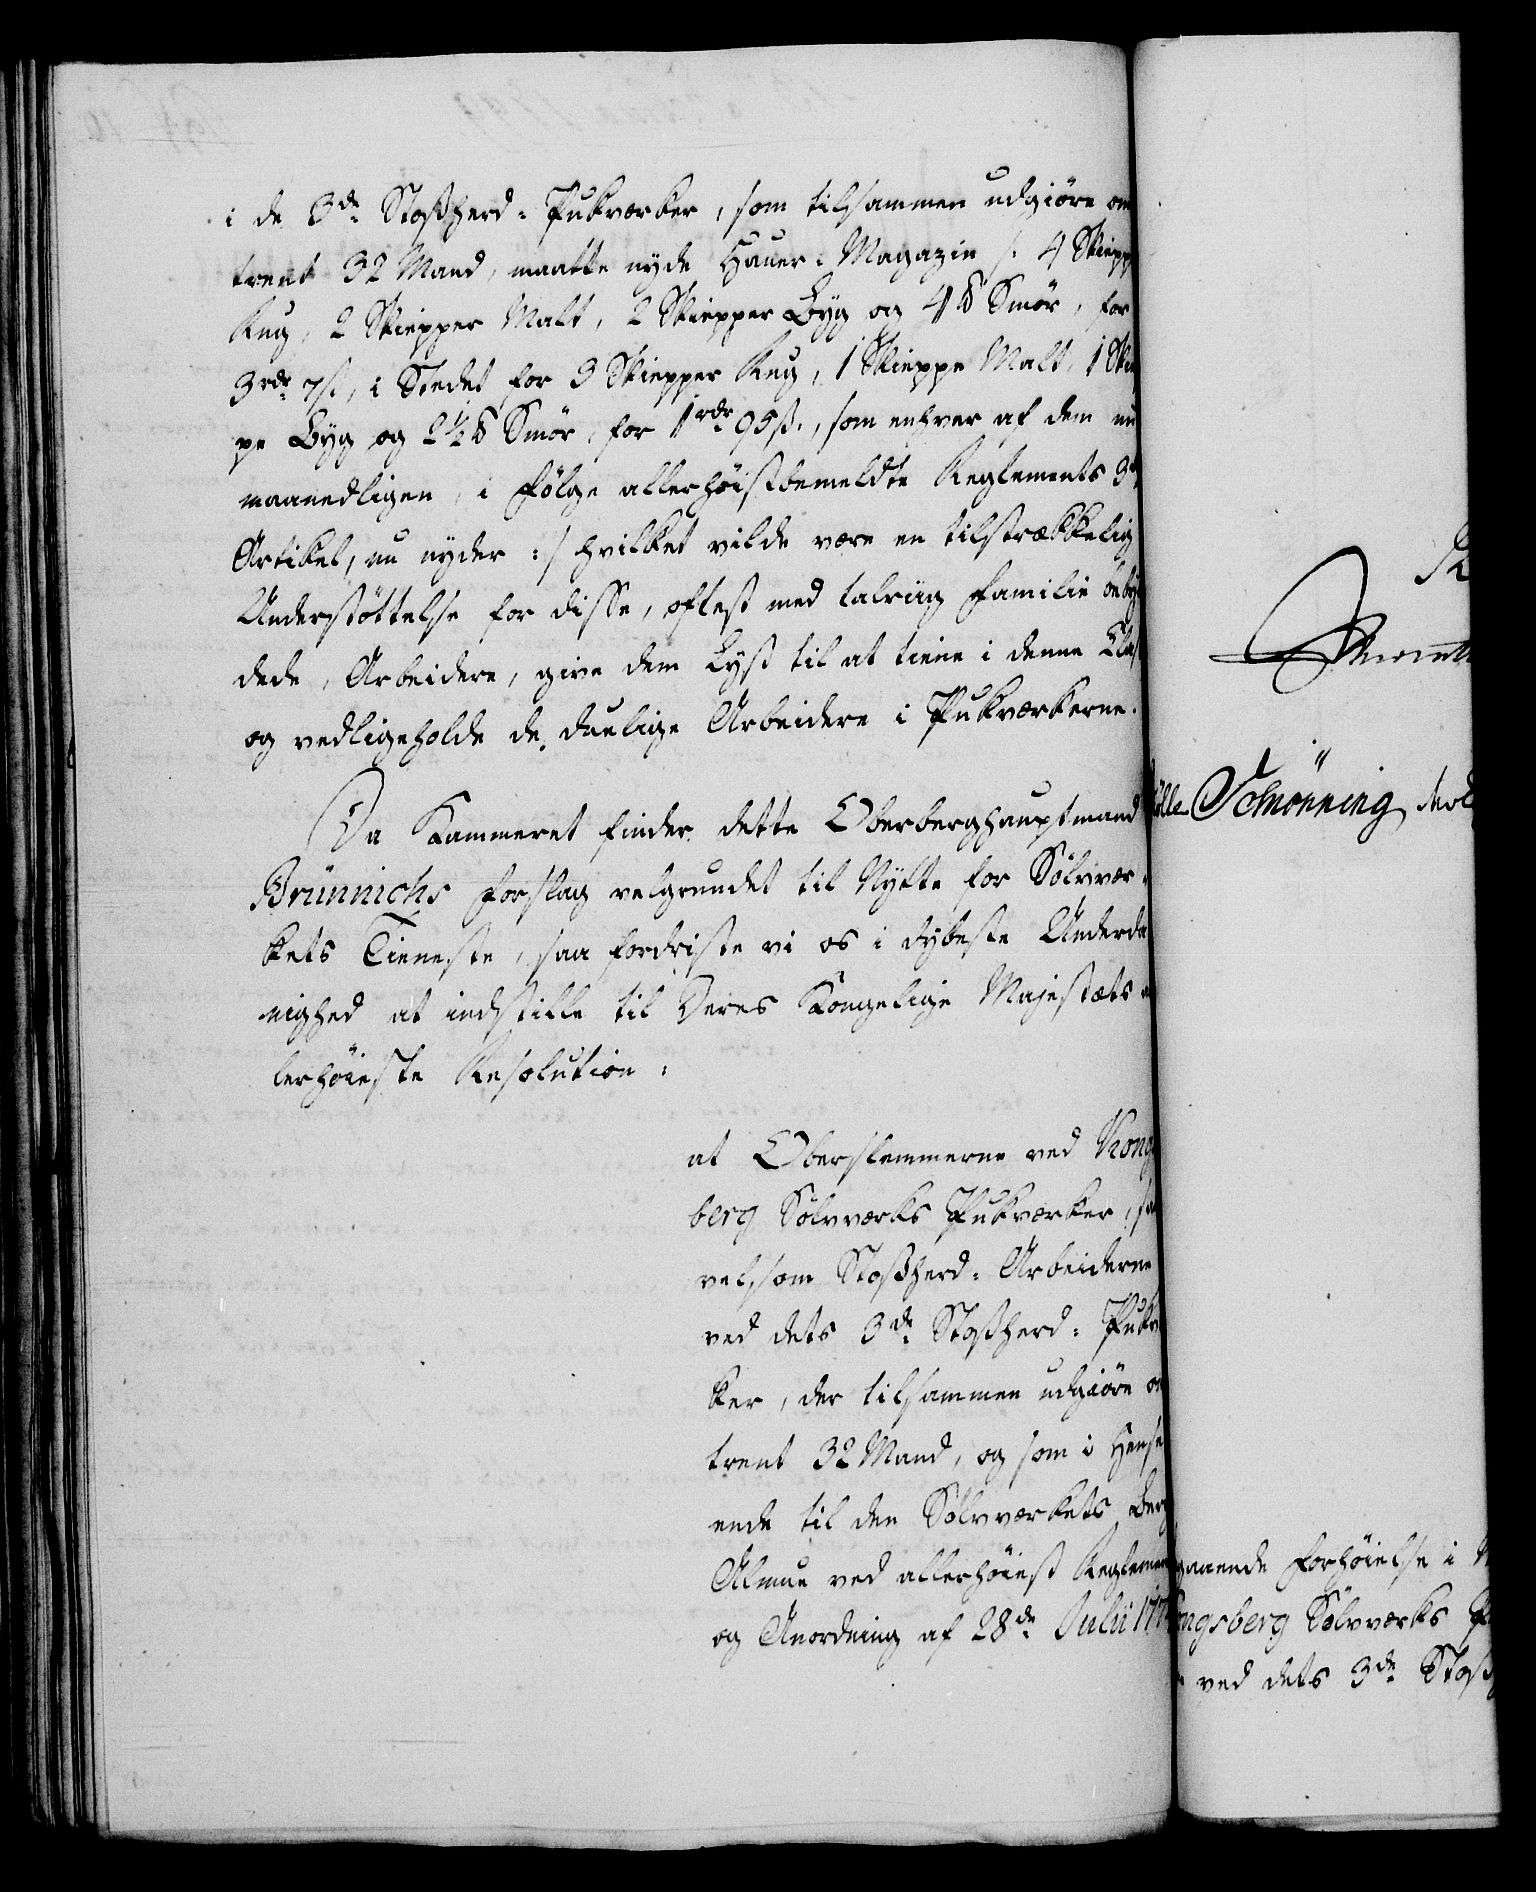 i de 3de Stoßherd-Pukværker, som tilsammen udgiøre om
trent 32 Mand, maatte nyde Hauer-Magazin /: 4 Skiepp
Rug, 2 Skiepper Malt, 2 Skiepper Byg og 4 ℔ Smör, for
3 rdr 7 ß, i Stedet for 3 Skiepper Rug, 1 Skieppe Malt, 1 Skie
pe Byg og 2½ ℔ Smör, for 1 rdr 95 ß., som enhver af dem
maanedligen, i Fölge allerhöistbemeldte Reglements 3de
Artikel, nu nyder :/ hvilket vilde være en tilstrækkelig
Understöttelse for disse, oftest med talriig Familie beby
dede, Arbeidere, give dem Lyst til at tiene i denne Clas
og vedligeholde de duelige Arbeidere i Pukværkerne.
Da Kammeret finder dette Oberberghauptmand
Brünnichs Forslag velgrundet til Nytte for Sölvvær-
kets Tieneste, saa fordriste vi os i dybeste Underda
nighed at indstille til Deres Kongelige Majestæts a
lerhöieste Resolution:
at Oberslemmerne ved Kong
berg Sölvværks Pukværker, saa
velsom Stoßherd-Arbeiderne
ved dets 3de Stoßherd-Pukv
ker, der tilsammen udgiöre om
trent 32 Mand, og som i Hense
ende til den Sölvværkets Berg
Almue ved allerhöiest Reglement
og Anordning af 28de Julii 17
Schönning
gaaende Forhöielse i
ongsberg Sölvværks P
ved dets 3de Stoß